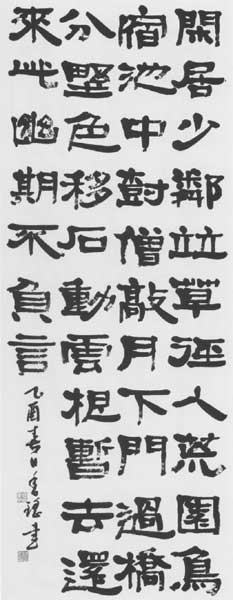 閑居少鄰竝草徑入荒園鳥
宿池中尌僧敲月下門過橋
分墅色移石動雲根暫去還
來此幽期不負言
乙酉春日書